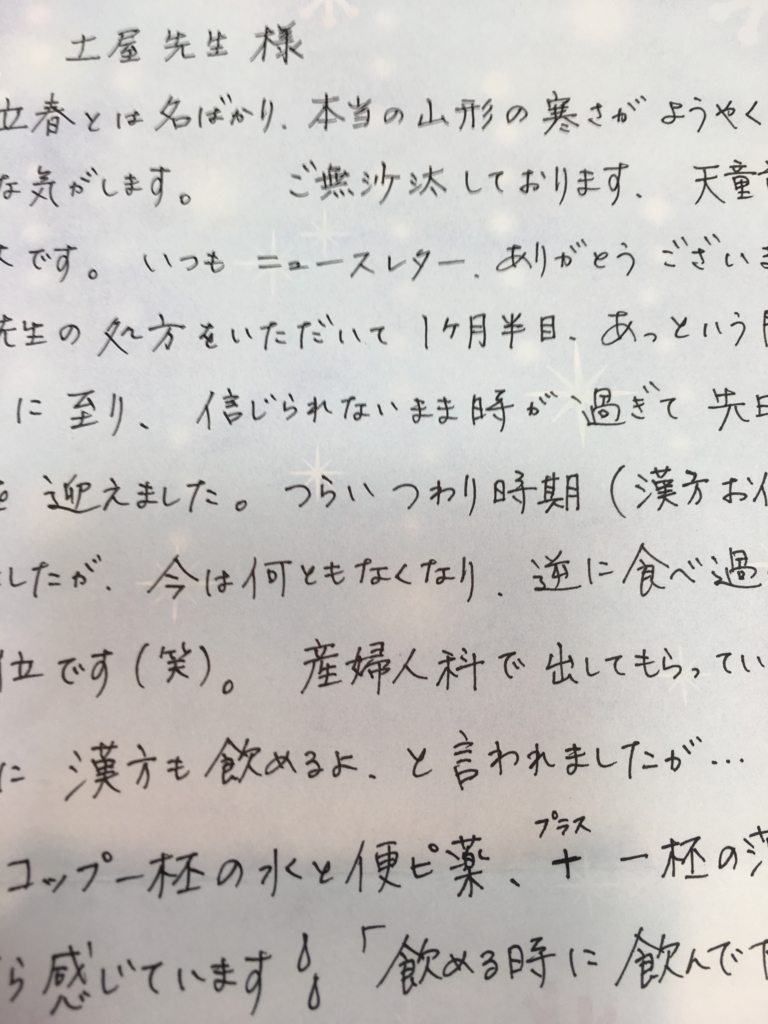 土屋先生様
立春とは名ばかり、本当の山形の寒さがようやく
な気がします。 ご無沙汰しております、天童
です。いつもニュースレター、ありがとうございま
先生の処方をいただいて1ヶ月半目、あっという
に至り、信じられないまま時が過ぎて先日
迎えました。つらいつわり時期(漢方お
したが、今は何ともなくなり、逆に食べ過
位です(笑)。 産婦人科で出してもらってい
に漢方も飲めるよ、と言われましたが…
プラス
コップ一杯の水と便ピ薬、+一杯の
ら感じています 「飲める時に飲んで下